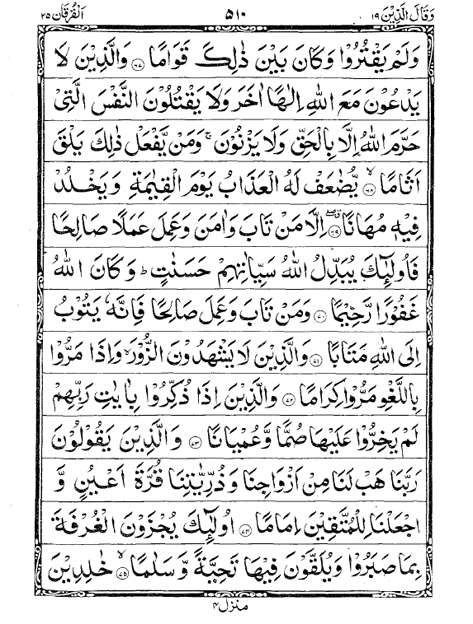 وَقَالَ الَّذِیْنَ ۱۹ ۵۱۰ اَلْفُرْقَان ۲۵
وَلَمْ یَقْتُرُوْا وَكَانَ بَیْنَ ذٰلِكَ قَوَامًا ﴿۶۷﴾ وَالَّذِیْنَ لَا
یَدْعُوْنَ مَعَ اللّٰهِ اِلٰهًا اٰخَرَ وَلَا یَقْتُلُوْنَ النَّفْسَ الَّتِیْ
حَرَّمَ اللّٰهُ اِلَّا بِالْحَقِّ وَلَا یَزْنُوْنَ ۚ وَمَنْ یَّفْعَلْ ذٰلِكَ یَلْقَ
اَثَامًا ﴿۶۸﴾ۙ یُّضٰعَفْ لَهُ الْعَذَابُ یَوْمَ الْقِیٰمَةِ وَیَخْلُدْ
فِیْهٖ مُهَانًا ﴿۶۹﴾ۗ اِلَّا مَنْ تَابَ وَاٰمَنَ وَعَمِلَ عَمَلًا صَالِحًا
فَاُولٰٓئِكَ یُبَدِّلُ اللّٰهُ سَیِّاٰتِهِمْ حَسَنٰتٍ ؕ وَكَانَ اللّٰهُ
غَفُوْرًا رَّحِیْمًا ﴿۷۰﴾ وَمَنْ تَابَ وَعَمِلَ صَالِحًا فَاِنَّهٗ یَتُوْبُ
اِلَی اللّٰهِ مَتَابًا ﴿۷۱﴾ وَالَّذِیْنَ لَا یَشْهَدُوْنَ الزُّوْرَ ۙ وَاِذَا مَرُّوْا
بِاللَّغْوِ مَرُّوْا كِرَامًا ﴿۷۲﴾ وَالَّذِیْنَ اِذَا ذُكِّرُوْا بِاٰیٰتِ رَبِّهِمْ
لَمْ یَخِرُّوْا عَلَیْهَا صُمًّا وَّعُمْیَانًا ﴿۷۳﴾ وَالَّذِیْنَ یَقُوْلُوْنَ
رَبَّنَا هَبْ لَنَا مِنْ اَزْوَاجِنَا وَذُرِّیّٰتِنَا قُرَّةَ اَعْیُنٍ وَّ
اجْعَلْنَا لِلْمُتَّقِیْنَ اِمَامًا ﴿۷۴﴾ اُولٰٓئِكَ یُجْزَوْنَ الْغُرْفَةَ
بِمَا صَبَرُوْا وَیُلَقَّوْنَ فِیْهَا تَحِیَّةً وَّسَلٰمًا ﴿۷۵﴾ۙ خٰلِدِیْنَ
منزل ۴